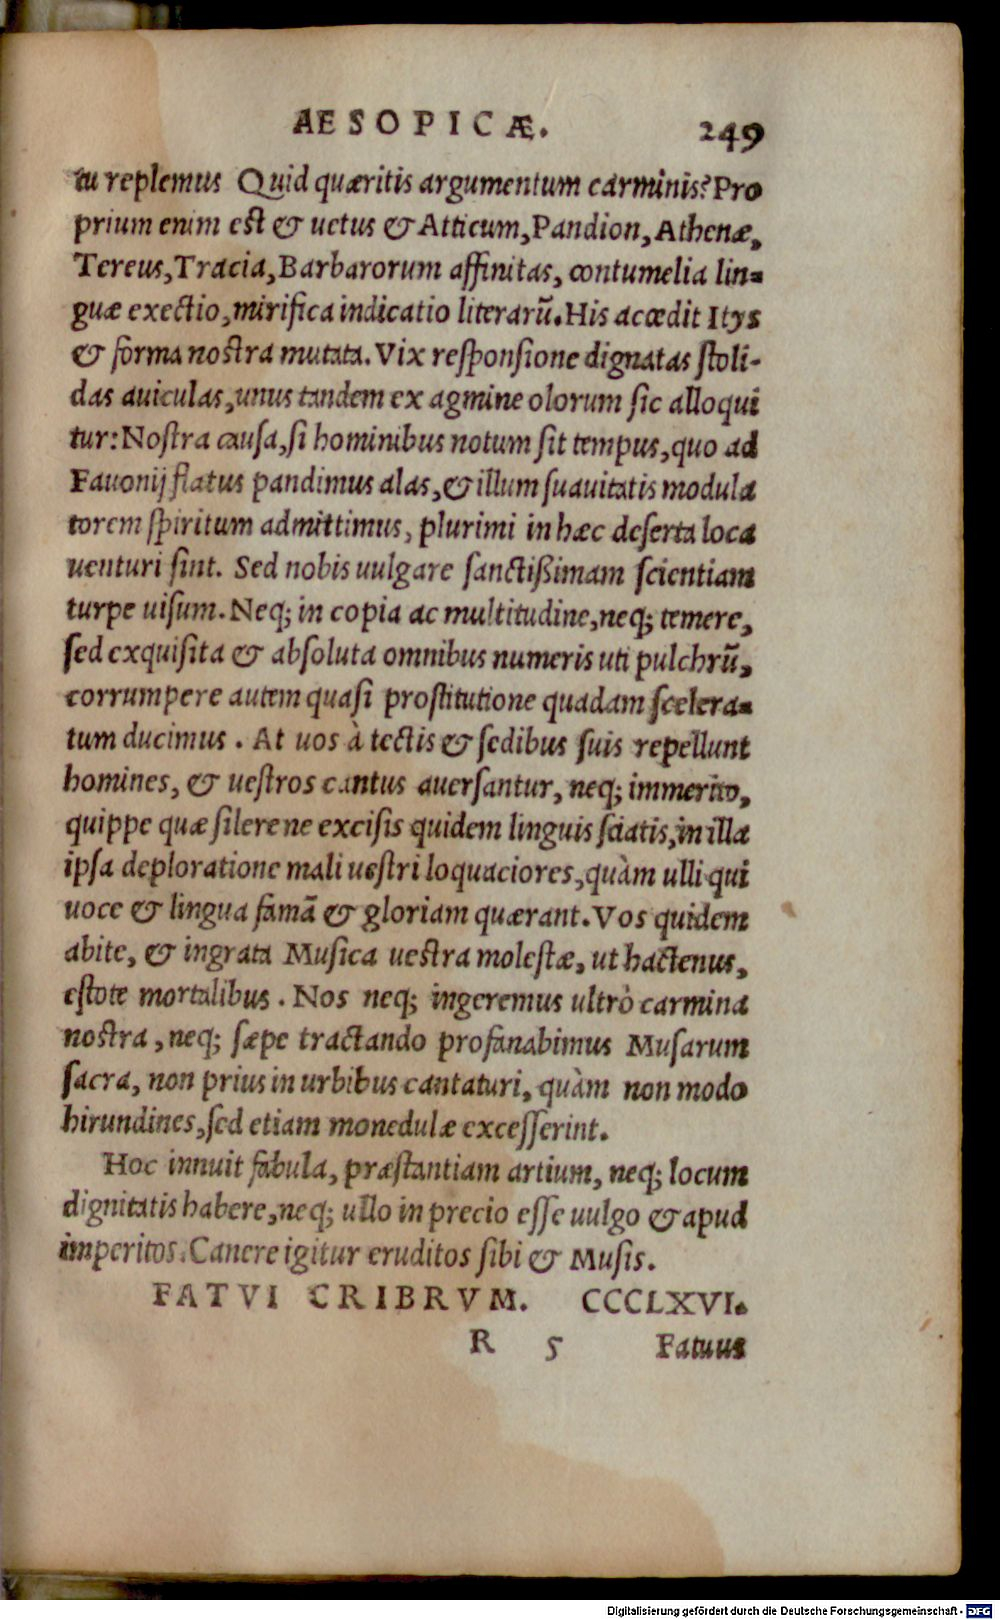 AESOPICÆ. 249
tu replemus Quid quæritis argumentum carminis? Pro
prium enim est & uetus & Atticum, Pandion, Athenæ,
Tereus, Tracia, Barbarorum affinitas, contumelia lin-
guæ exectio, mirifica indicatio literarũ. His accedit Itys
& forma nostra mutata. Vix responsione dignatas stoli-
das auiculas, unus tandem ex agmine olorum sic alloqui
tur: Nostra causa, si hominibus notum sit tempus, quo ad
Fauonij flatus pandimus alas, & illum suauitatis modula
torem spiritum admittimus, plurimi in hæc deserta loca
uenturi sint. Sed nobis uulgare sanctißimam scientiam
turpe uisum. Neq; in copia ac multitudine, neq; temere,
sed exquisita & absoluta omnibus numeris uti pulchrũ,
corrumpere autem quasi prostitutione quadam scelera-
tum ducimus. At uos à tectis & sedibus suis repellunt
homines, & uestros cantus auersantur, neq; immerito,
quippe quæ silere ne excisis quidem linguis sciatis, in illa
ipsa deploratione mali uestri loquaciores, quàm ulli qui
uoce & lingua famã & gloriam quærant. Vos quidem
abite, & ingrata Musica uestra molestæ, ut hactenus,
estote mortalibus. Nos neq; ingeremus ultrò carmina
nostra, neq; sæpe tractando profanabimus Musarum
sacra, non prius in urbibus cantaturi, quàm non modo
hirundines, sed etiam monedulæ excesserint.
Hoc innuit fabula, præstantiam artium, neq; locum
dignitatis habere, neq; ullo in precio esse uulgo & apud
imperitos. Canere igitur eruditos sibi & Musis.
FATVI CRIBRVM. CCCLXVI.
R 5 Fatuus
Digitalisierung gefördert durch die Deutsche Forschungsgemeinschaft - DFG